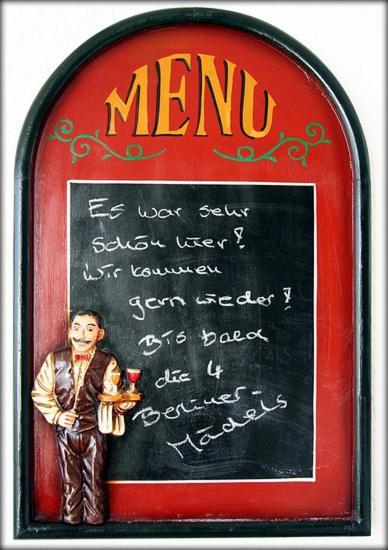 MENU
Es war sehr
schön hier!
Wir kommen
gern wieder!
Bis bald
die 4
Berliner-
Mädels